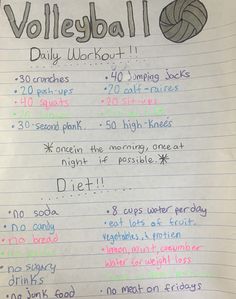 Volleyball
Daily Workout!!
• 30 crunches • 40 Jumping Jacks
• 20 push-ups • 20 calf-raires
• 40 squats • 20 sit-ups
• 30-second plank. • 50 high-knees
*once in the morning, once at
night if possible.*
Diet!!
• no soda • 8 cups water per day
• no candy • eat lots of fruit
• no bread vegetables, & protien
• lemon, mint, cucumber
no sugary water for weight loss
drinks
• no junk food • no meat on fridays